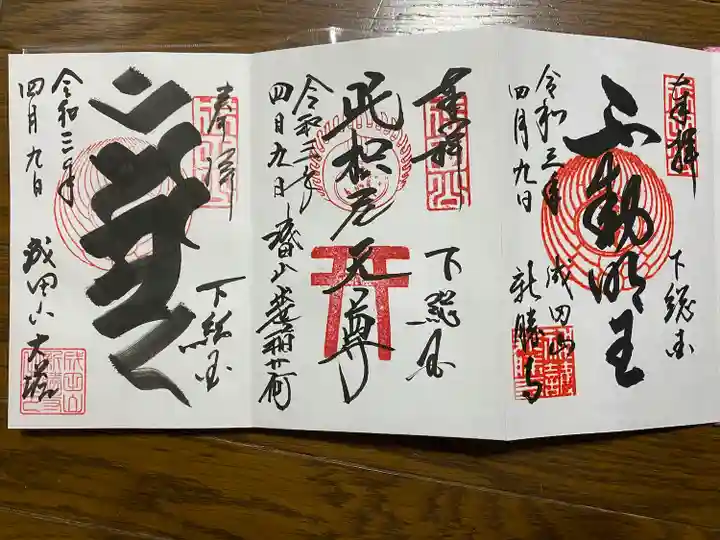 奉拝
下総国
不動明王
令和三年
四月九日
成田山
新勝寺
奉拝
下総国
荼枳尼天尊
令和三年
四月九日
奉拝
下総国
令和三年
四月九日
成田山大塔